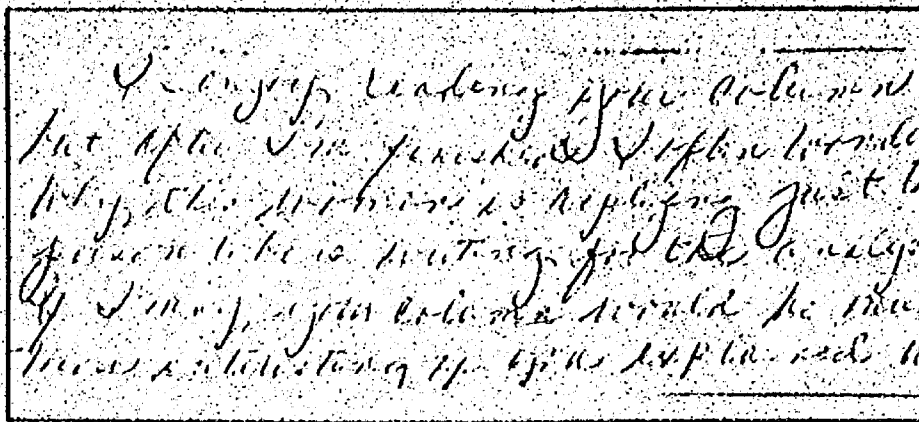 I enjoy reading your column
but after I'm finished I often wonde
why this woman is replying just t
person who is writing for the analys
If I may, your column would be mu
more interesting if you explained